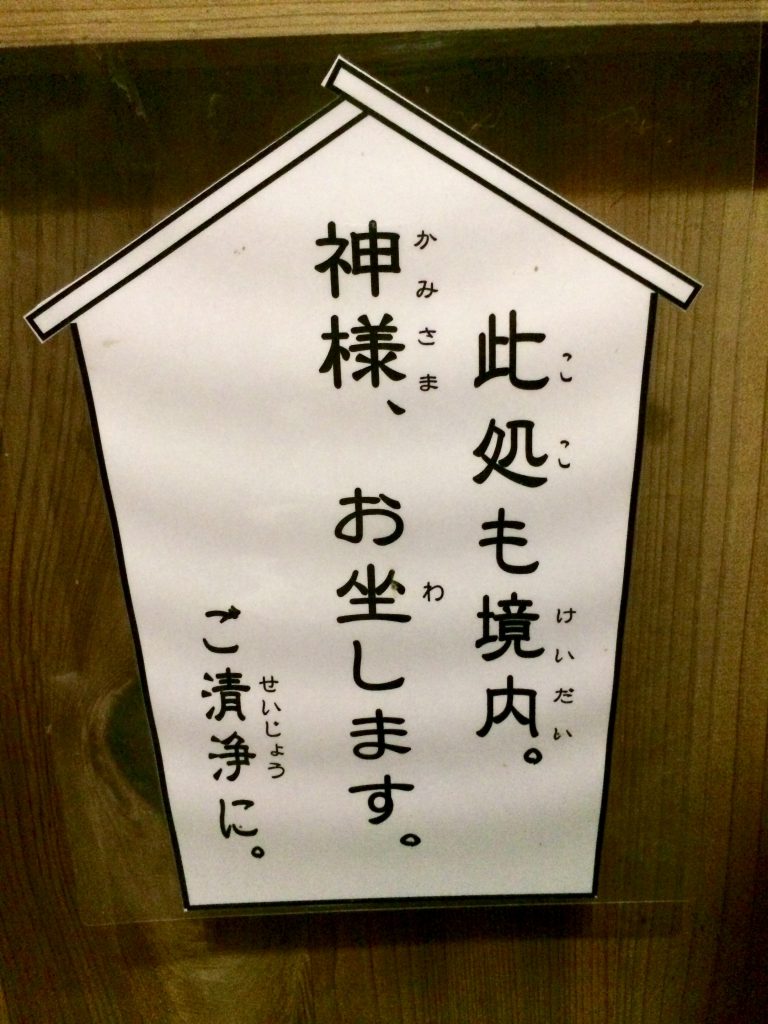 此処も境内。
神様、お坐します。
ご清浄に。
ここ
けいだい
かみさま
わ
せいじょう